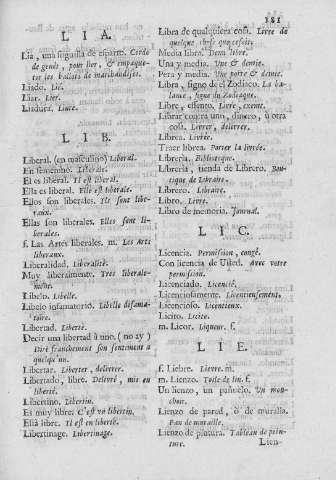 181
LIA.
Lia, una soguilla de esparto. Corde
de genêt, pour lier, & empaque-
ter les ballots de marchandises.
Liado. Lié.
Liar. Lier.
Liadura. Liure.
LIB.
Liberal. (en masculino) Liberal.
En femenino. Liberale.
El es liberal. Il est liberal.
Ella es liberal. Elle est liberale.
Ellos son liberales. Ils sont libe-
raux.
Ellas son liberales. Elles sont li-
berales.
f. Las Artes liberales. m. Les Arts
liberaux.
Liberalidad. Liberalité.
Muy liberalmente. Tres liberale-
ment.
Libelo. Libelle.
Libelo infamatorio. Libelle diffama-
toire.
Libertad. Liberté.
Decir una libertad à uno. (no ay)
Dire franchement son sentiment à
quelqu'un.
Libertar. Liberter, delivrer.
Libertado, libre. Delivré, mis en
liberté.
Libertino. Libertin.
Es muy libre. C'est un libertin.
Està libre. Il est en liberté.
Libertinage. Libertinage.
Libra de qualquiera cosa. Livre de
quelque chose que ce soit.
Media libra. Demi livre.
Una y media. Une & demie.
Pera y media. Une poire & demie.
Libra, signo de el Zodiaco. La ba-
lance, signe du Zodiaque.
Libre, essento. Livre, exemt.
Librar contra uno, dinero, ù otra
cosa. Livrer, delivrer.
Librea. Livrée.
Traer librea. Porter la livrée.
Libreria. Bibliotheque.
Libreria, tienda de Librero. Bou-
tique de Libraire.
Librero. Libraire.
Libro. Livre.
Libro de memoria. Journal.
LIC.
Licencia. Permission, congé.
Con licencia de Usted. Avec votre
permission.
Licenciado. Licencié.
Licenciosamente. Licentieusement.
Licencioso. Licentieux.
Licito. Licite.
m. Licor. Liqueur. f.
LIE.
f. Liebre. Lievre. m.
m. Lienzo. Toile de lin. f.
Un lienzo, un pañuelo. Un mou-
choir.
Lienzo de pared, ò de muralla.
Pan de muraille.
Lienzo de pintura. Tableau de pein-
ture.
Lien-